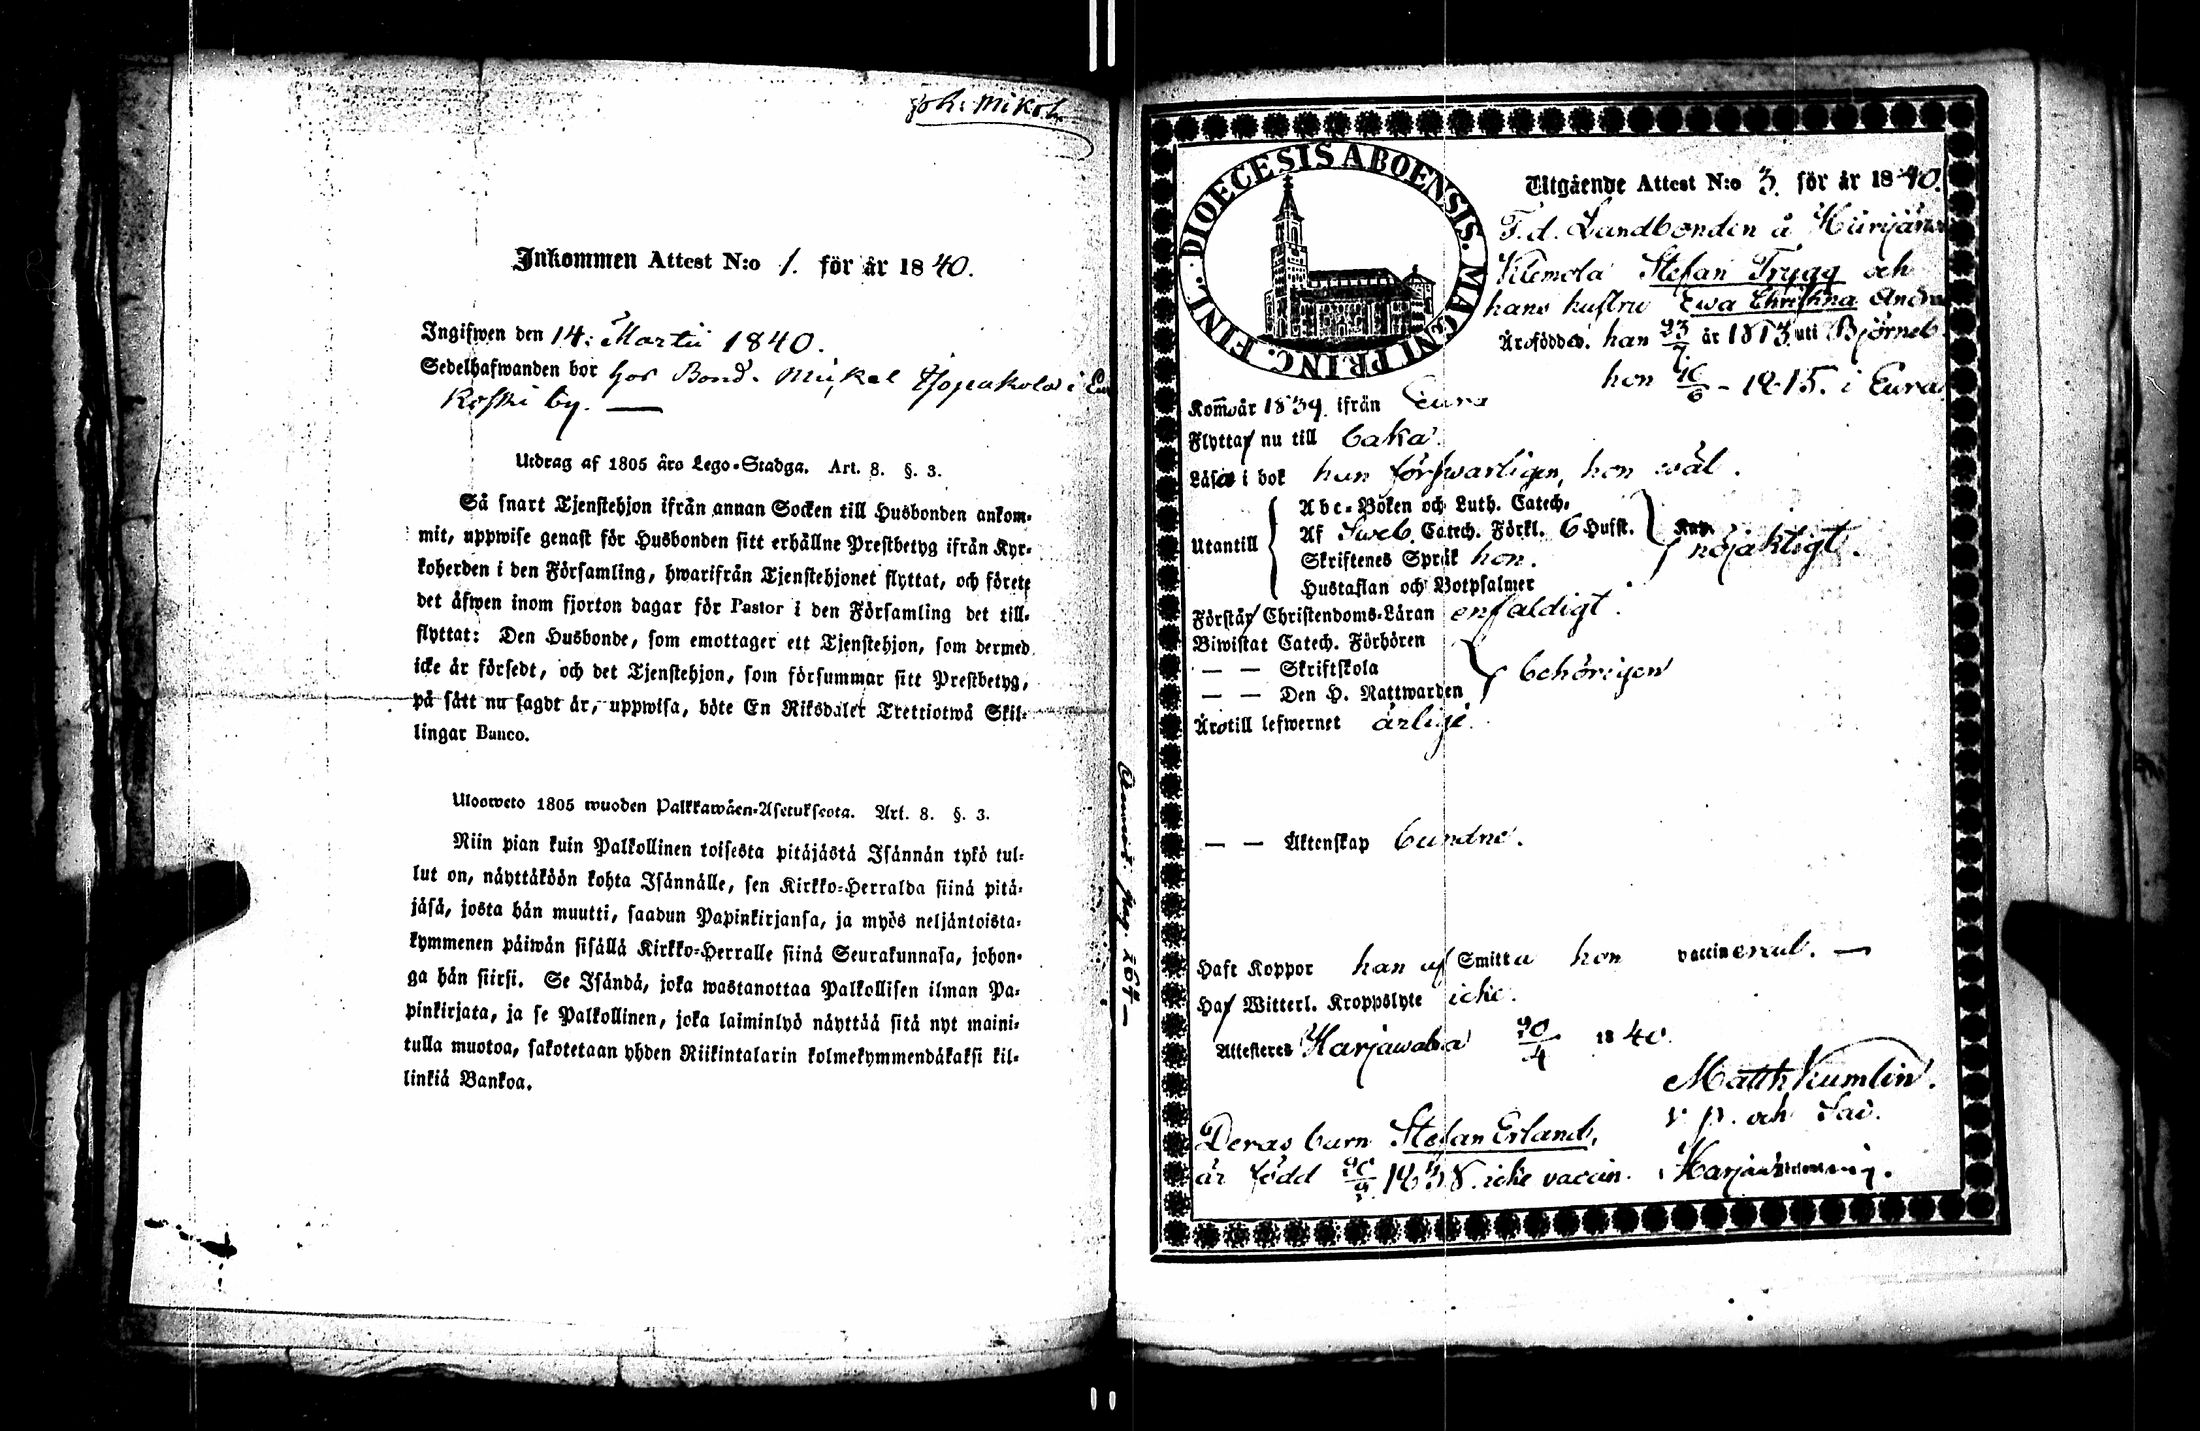 Joh. Mikol.
Inkommen Attest N:o 1. för år 1840.
Ingifwen den 14: Martii 1840.
Sedelhafwanden bor hos Bond. Mickel i
Koski by. —
Utdrag af 1805 års Lego-Stadga. Art. 8. §. 3.
Så snart Tjenstehjon ifrån annan Socken till Husbonden ankom-
mit, uppwise genast för Husbonden sitt erhållne Prestbetyg ifrån Kyr-
koherden i den Församling, hwarifrån Tjenstehjonet flyttat, och förete
det äfwen inom fjorton dagar för Pastor i den Församling det till-
flyttat: Den Husbonde, som emottager ett Tjenstehjon, som dermed
icke är försedt, och det Tjenstehjon, som försummar sitt Prestbetyg,
på sätt nu sagdt är, uppwisa, böte En Riksdaler Trettiotwå Skil-
lingar Banco.
Ulosweto 1805 wuoden Palkkawäen-Asetuksesta. Art. 8. §. 3.
Niin pian kuin Palkollinen toisesta pitäjästä Isännän tykö tul-
lut on, näyttäköön kohta Isännälle, sen Kirkko-Herralda siinä pitä-
jäsä, josta hän muutti, saadun Papinkirjansa, ja myös neljäntoista-
kymmenen päiwän sisällä Kirkko-Herralle siinä Seurakunnasa, johon-
ga hän siirsi. Se Isändä, joka wastanottaa Palkollisen ilman Pa-
pinkirjata, ja se Palkollinen, joka laiminlyö näyttää sitä nyt maini-
tulla muotoa, sakotetaan yhden Riikintalarin kolmekymmendäkaksi kil-
linkiä Bankoa.
DIOECESIS ABOENSIS. MAGNI PRINC. FINL.
Utgående Attest N:o 3. för år 1840.
F.d. Landbonden å
Klemola Stefan Trygg och
hans hustru Ewa Christina
Äro födde. han 23/7 år 1813 uti Björneb.
hon 1815. i Eura
Kom år 1839. ifrån Eura
Flytta nu till baka.
Läsa i bok han förswarligen, hon wäl.
Utantill
Abc-Boken och Luth. Catech.
Af Sweb. Catech. Förkl. 6 Hufst.
Skriftenes Språk hon.
Hustaflan och Botpsalmer
nöjaktigt.
Förstå Christendoms-Läran enfaldigt.
Biwistat Catech. Förhören
— — Skriftskola
— — Den H. Nattwarden
behörigen
Äro till lefwernet ärlige.
— — Äktenskap bundne.
Haft Koppor han af Smitta hon vaccinerad. —
Haf Witterl. Kroppslyte icke.
Attesteres Harjawalta 20/4 1840.
Matth Kumlin.
v p. och Sac.
Deras barn Stefan Erland,
är född 1838. icke vaccin.
pag. 267 —